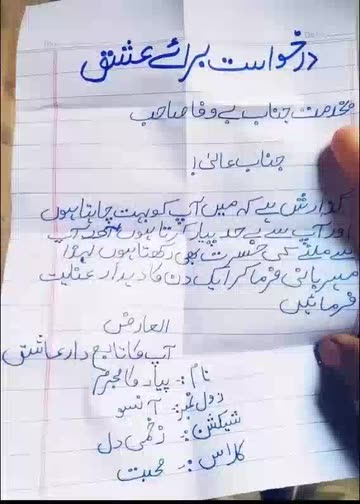 درخواست برائے عشق
بخدمت جناب بے وفا صاحب
جناب عالیٰ!
گذارش ہے کہ میں آپ کو بہت چاہتا ہوں
اور آپ سے بے حد پیار کرتا ہوں آپ
سے ملنے کی حسرت بھی رکھتا ہوں لہذا
مہربانی فرما کر ایک دن کا دیدار عنایت
فرمائیں
العارض
آپ کا تابع دار عاشق
نام: پیار کا مجرم
رول نمبر: آنسو
سیکشن: زخمی دل
کلاس: محبت